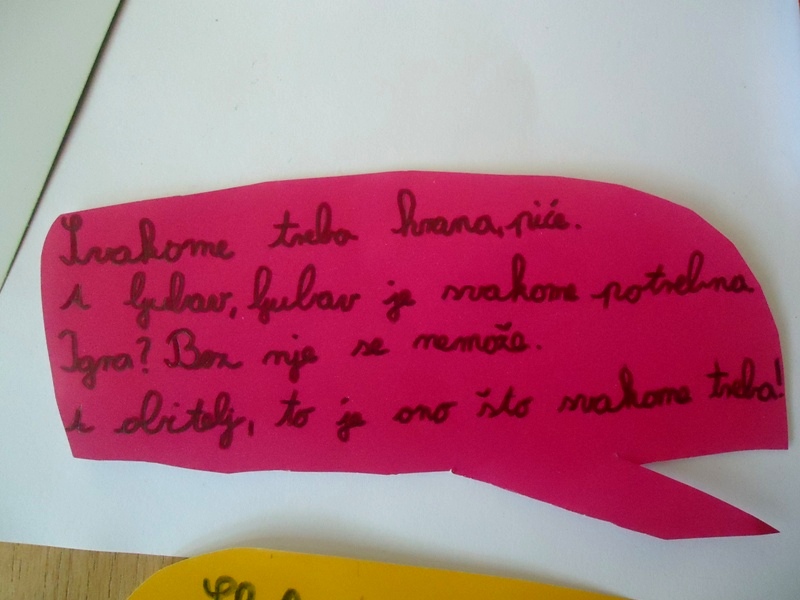 Svakome treba hrana, piće.
i ljubav, ljubav je svakome potrebna.
Igra? Bez nje se nemože.
i obitelj, to je ono što svakome treba!